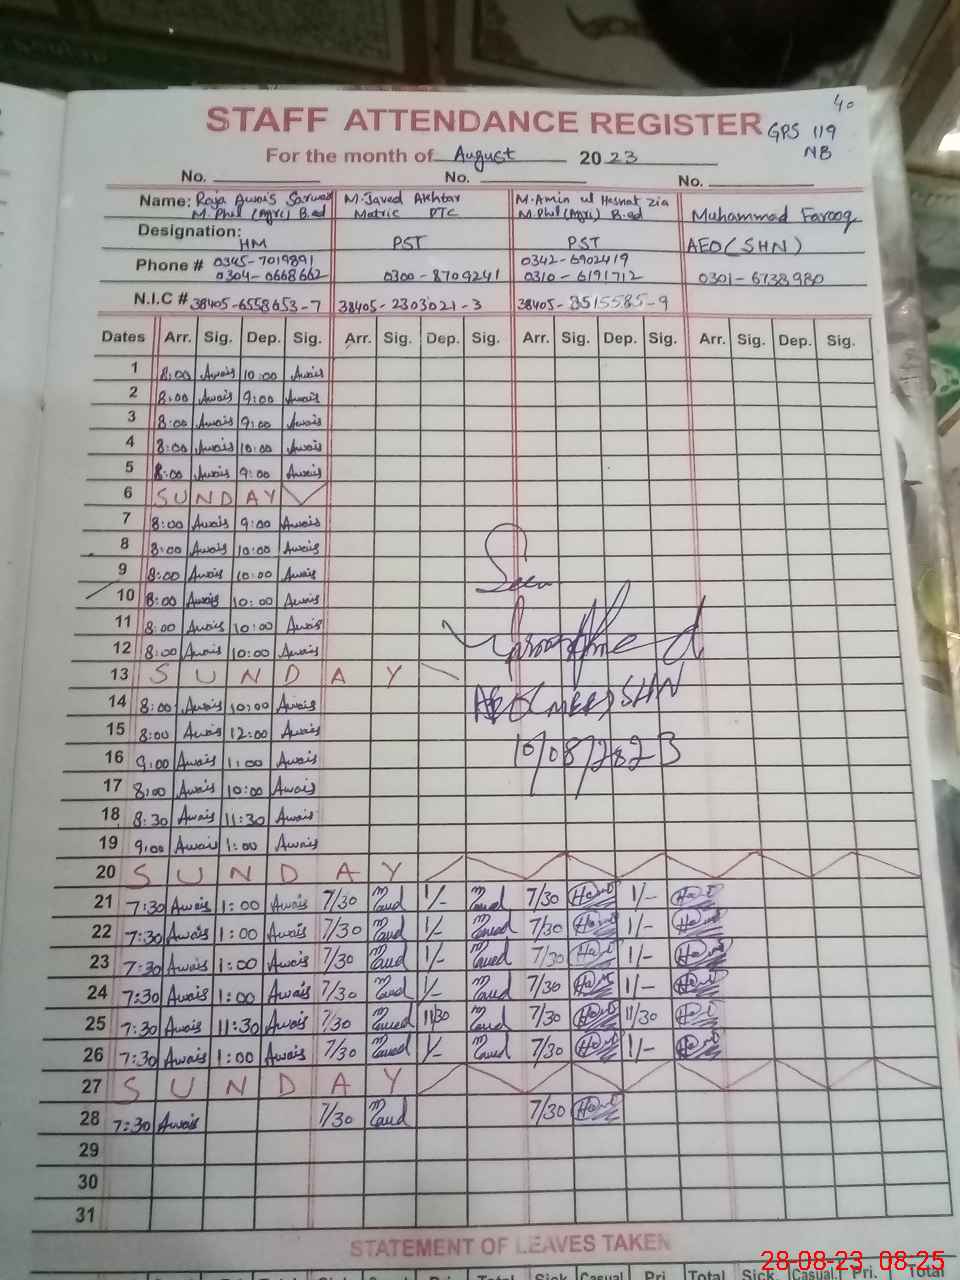 40
STAFF ATTENDANCE REGISTER GPS 119
NB
For the month of August 2023
No. No. No.
Name: Raja Awais Sarwar M. Javed Akhtar M. Amin ul Hasnat Zia Muhammad Farooq
M. Phil (Agri) B.ed Matric PTC M. Phil (Agri) B.ed
Designation: HM PST PST AEO (SHN)
Phone # 0345-7019891 0342-6902419
0304-0668662 0300-8709241 0310-6191712 0301-6738980
N.I.C # 38405-6558653-7 38405-2303021-3 38405-3515585-9
Dates Arr. Sig. Dep. Sig. Arr. Sig. Dep. Sig. Arr. Sig. Dep. Sig. Arr. Sig. Dep. Sig.
1 8:00 Awais 10:00 Awais
2 8:00 Awais 9:00 Awais
3 8:00 Awais 9:00 Awais
4 8:00 Awais 10:00 Awais
5 8:00 Awais 9:00 Awais
6 SUNDAY
7 8:00 Awais 9:00 Awais
8 8:00 Awais 10:00 Awais
9 8:00 Awais 10:00 Awais Seen
10 8:00 Awais 10:00 Awais
11 8:00 Awais 10:00 Awais
12 8:00 Awais 10:00 Awais
13 SUNDAY
14 8:00 Awais 10:00 Awais AEO (MEE) SHN
15 8:00 Awais 12:00 Awais
16 9:00 Awais 1:00 Awais 10/08/2023
17 8:00 Awais 10:00 Awais
18 8:30 Awais 11:30 Awais
19 9:00 Awais 1:00 Awais
20 SUNDAY
21 7:30 Awais 1:00 Awais 7/30 1/- 7/30 1/-
22 7:30 Awais 1:00 Awais 7/30 1/- 7/30 1/-
23 7:30 Awais 1:00 Awais 7/30 1/- 7/30 1/-
24 7:30 Awais 1:00 Awais 7/30 1/- 7/30 1/-
25 7:30 Awais 11:30 Awais 7/30 11/30 7/30 11/30
26 7:30 Awais 1:00 Awais 7/30 1/- 7/30 1/-
27 SUNDAY
28 7:30 Awais 7/30 7/30
29
30
31
STATEMENT OF LEAVES TAKEN
28-08-23 08:25
Total Sick Casual Pri. Total Sick Casual Pri. Total